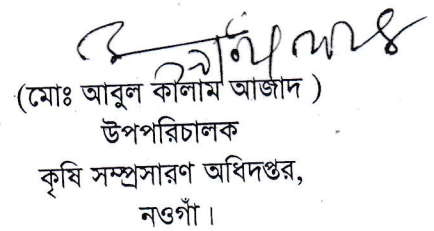 (মোঃ আবুল কালাম আজাদ )
উপপরিচালক
কৃষি সম্প্রসারণ অধিদপ্তর,
নওগাঁ ।